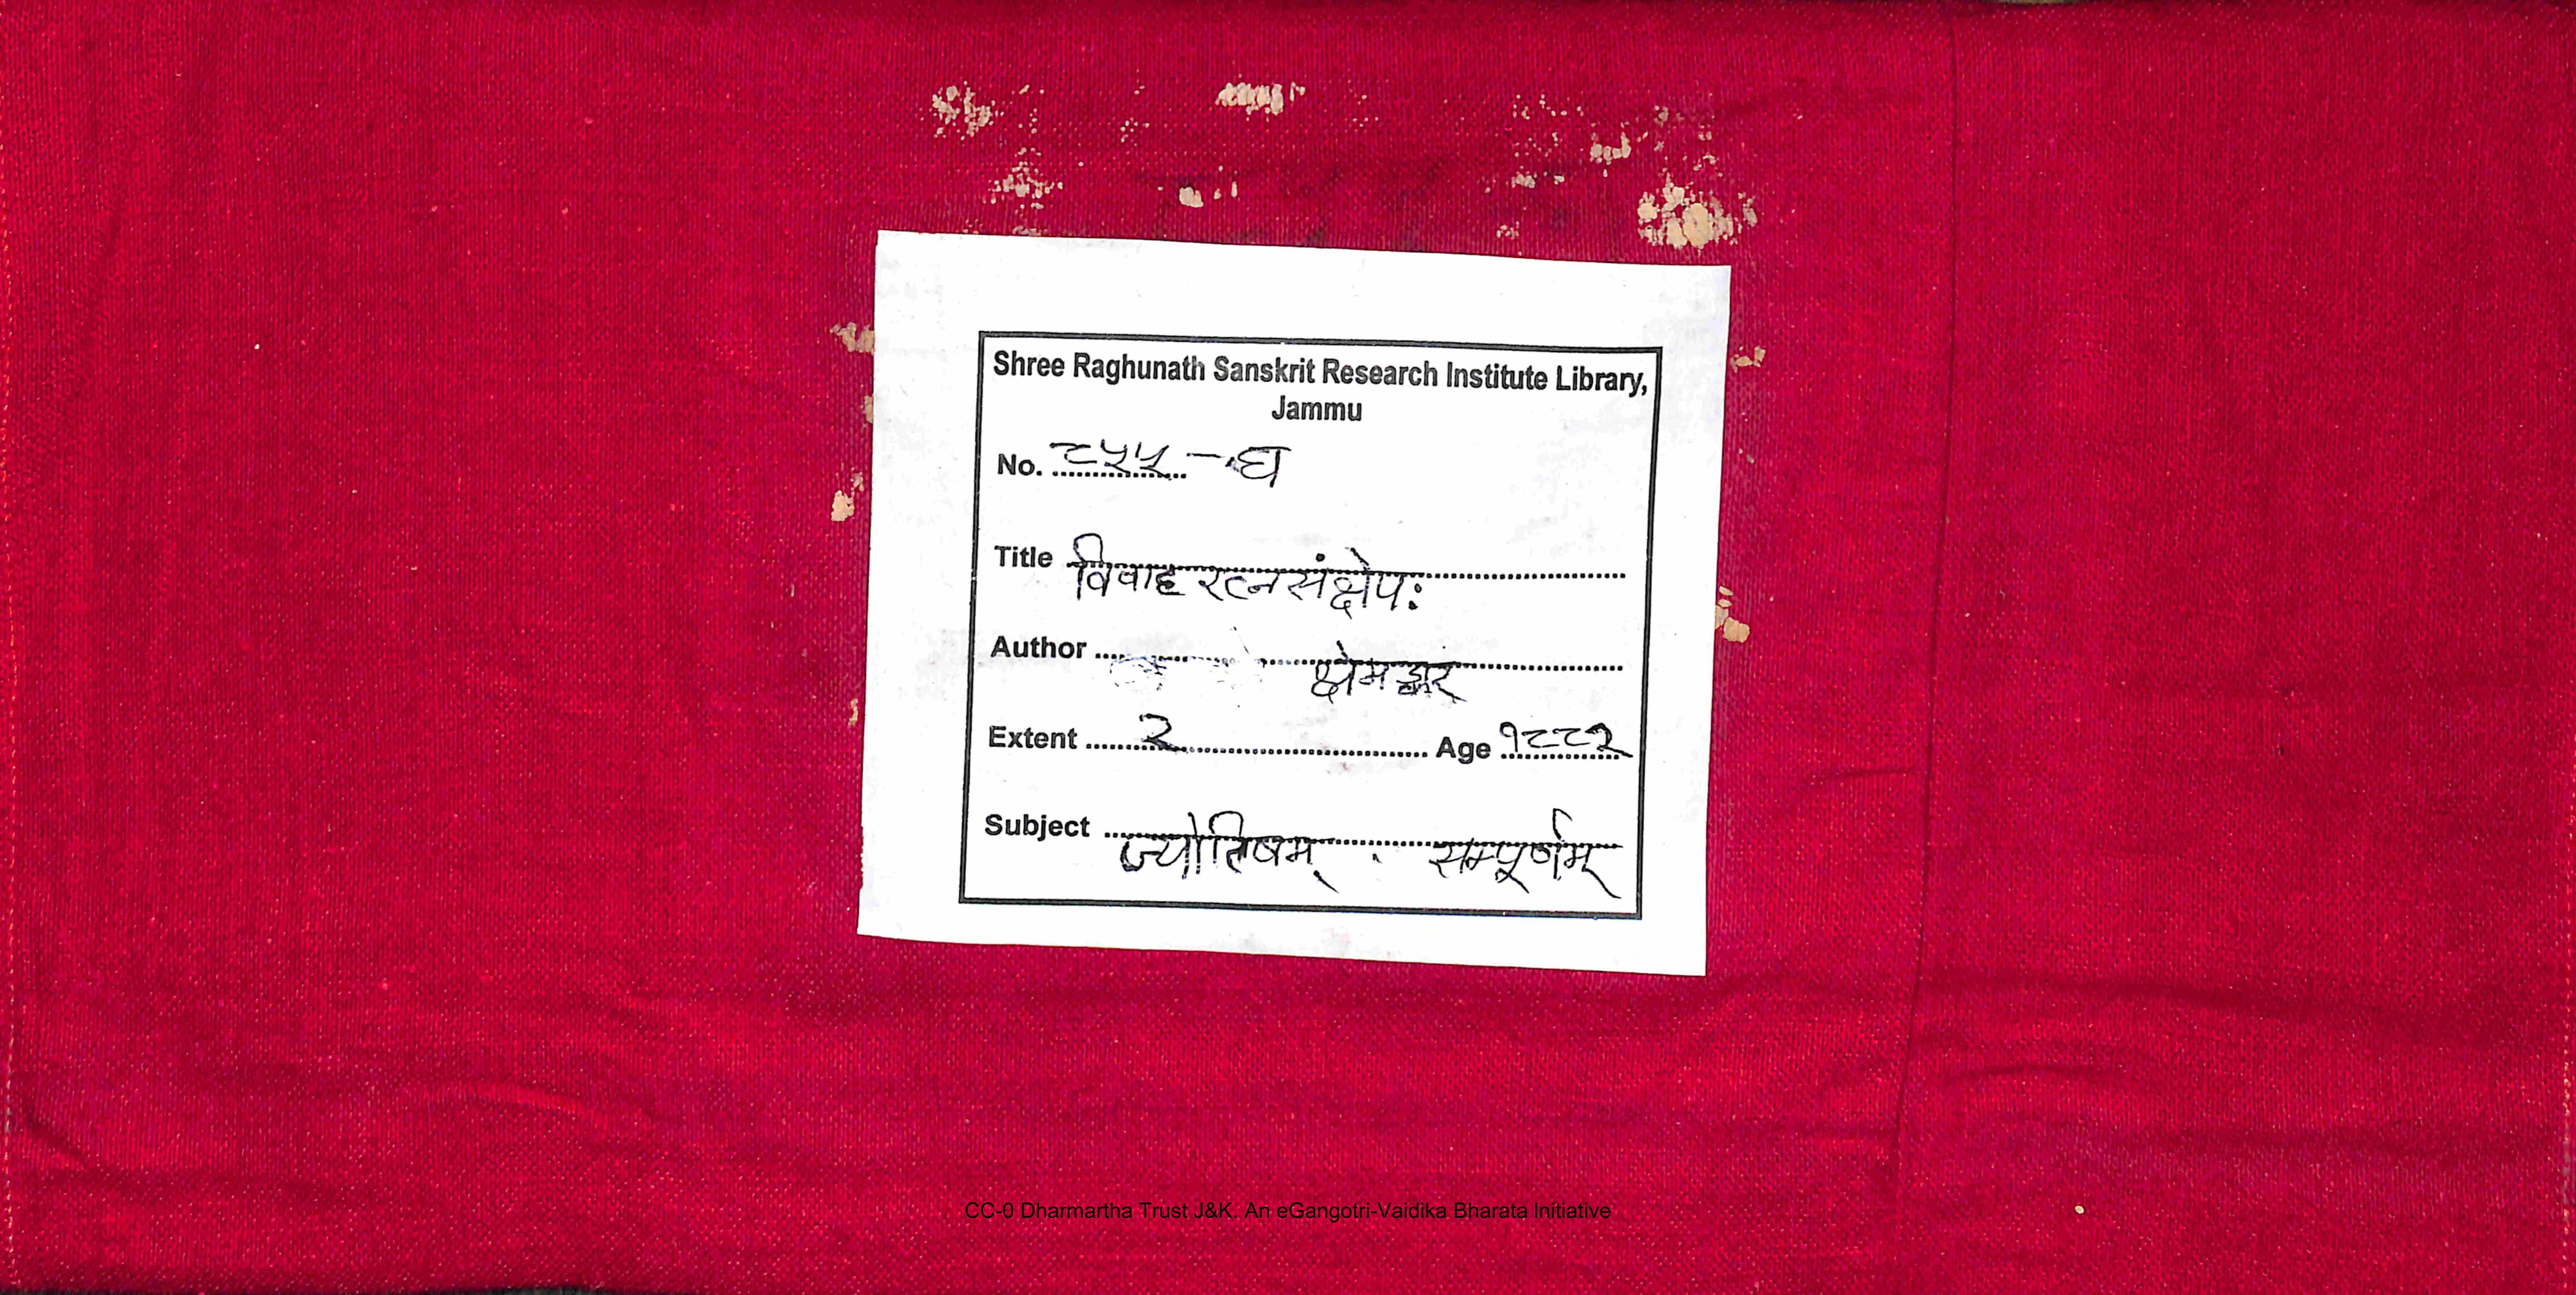 Shree Raghunath Sanskrit Research Institute Library,
Jammu
No. ८५५ - घ
Title विवाह रत्न संक्षेपः
Author क्षेमङ्कर
Extent २ Age १८८२
Subject ज्योतिषम् सम्पूर्णम्
CC-0 Dharmartha Trust J&K. An eGangotri-Vaidika Bharata Initiative